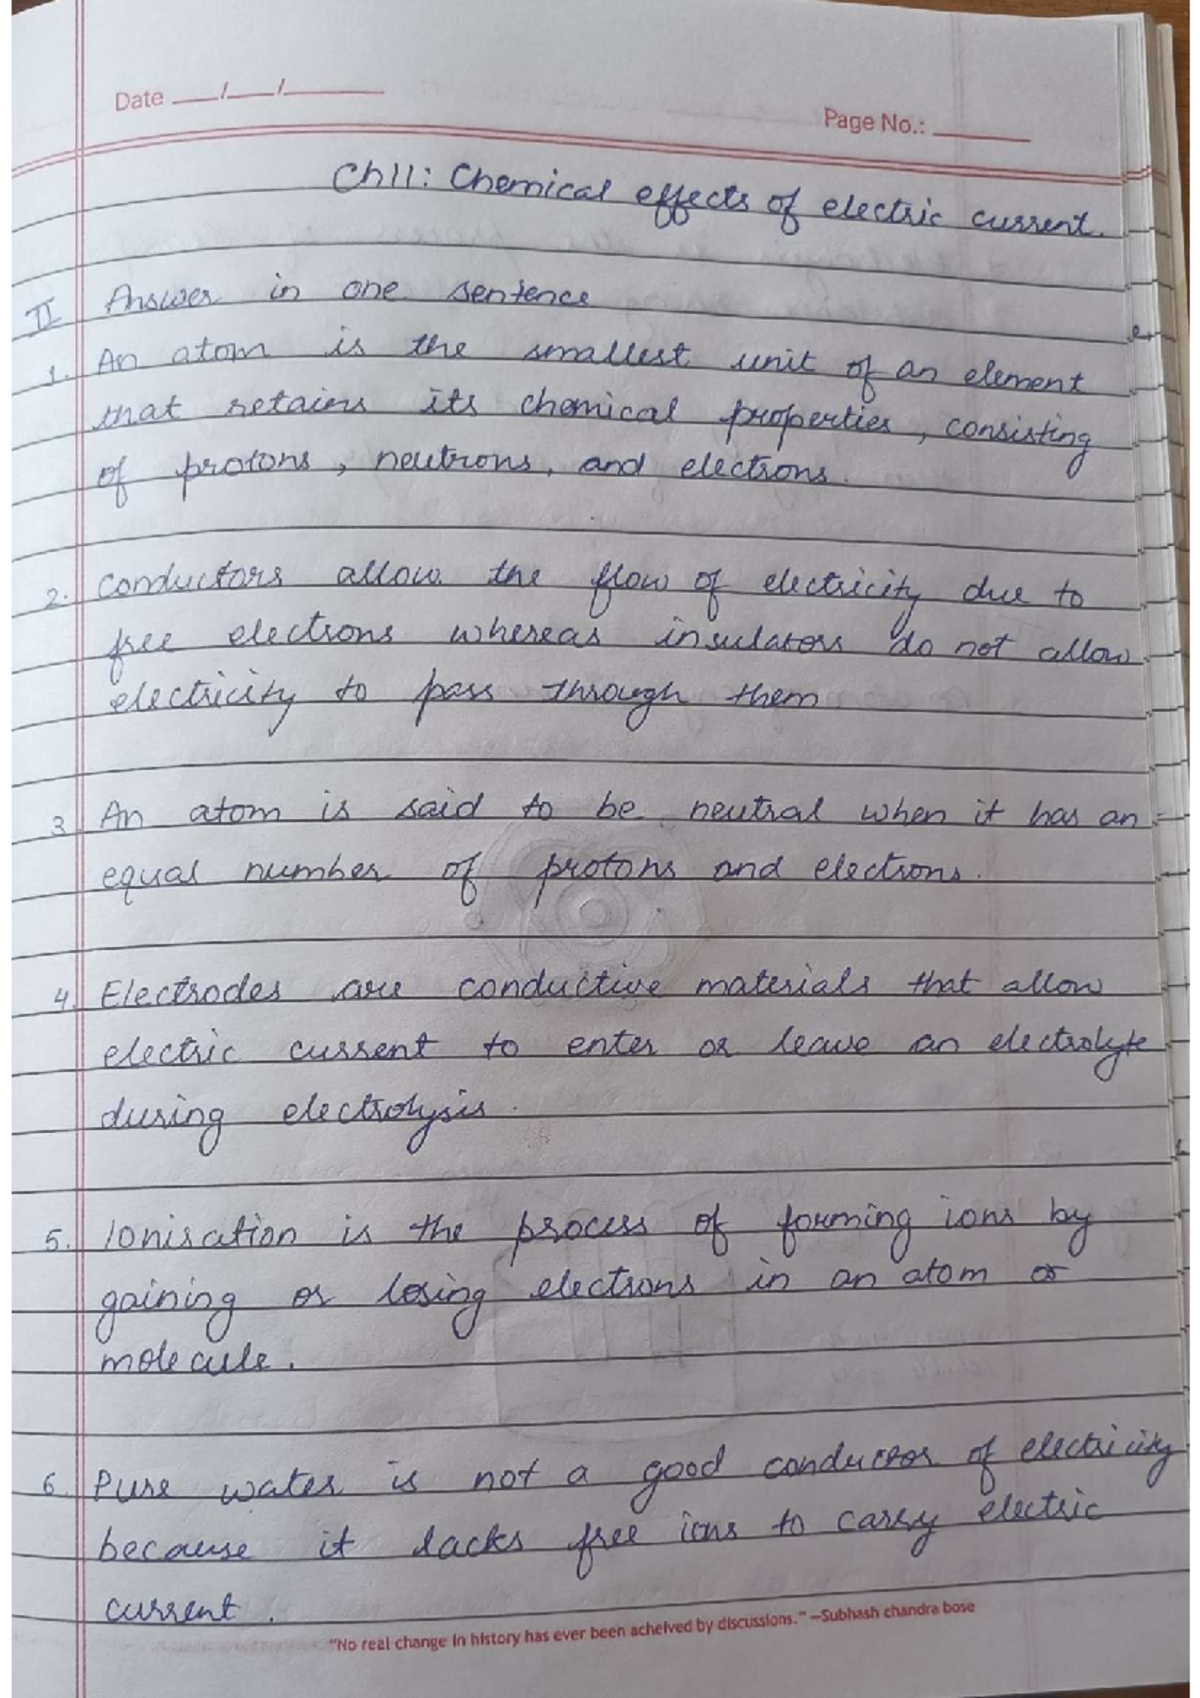 Date ___/___/______
Page No.: ______
Ch11: Chemical effects of electric current.
II Answer in one sentence
1. An atom is the smallest unit of an element
that retains its chemical properties, consisting
of protons, neutrons, and electrons.
2. Conductors allow the flow of electricity due to
free electrons whereas insulators do not allow
electricity to pass through them
3. An atom is said to be neutral when it has an
equal number of protons and electrons.
4. Electrodes are conductive materials that allow
electric current to enter or leave an electrolyte
during electrolysis.
5. Ionisation is the process of forming ions by
gaining or losing electrons in an atom or
molecule.
6. Pure water is not a good conductor of electricity
because it lacks free ions to carry electric
current.
"No real change in history has ever been acheived by discussions." –Subhash chandra bose